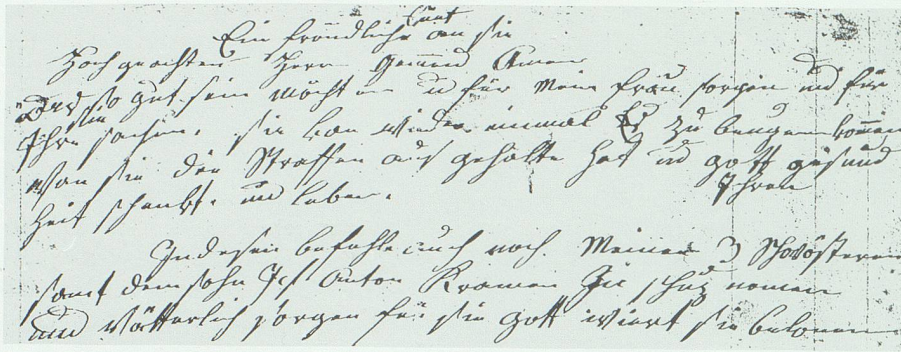 Ein fründliche bitt an sie
Hoch geachter Herr Gemeind Amen
Das sie so gut sein möchten und für Mein frau sorgen und für
Ihre sachen. sie kan wieder einmal zu bougen komen
Wan sie die Straffen aus gehalte hat und gott gesund
heit schenkt. und leben. Ihren
Indesen befehle auch noch Meinen 3 Schwösteren
samt dem sohn Jos Anton Kramer In schuz nemen
und Vätterlich sorgen für sie gott wiert sie belonen